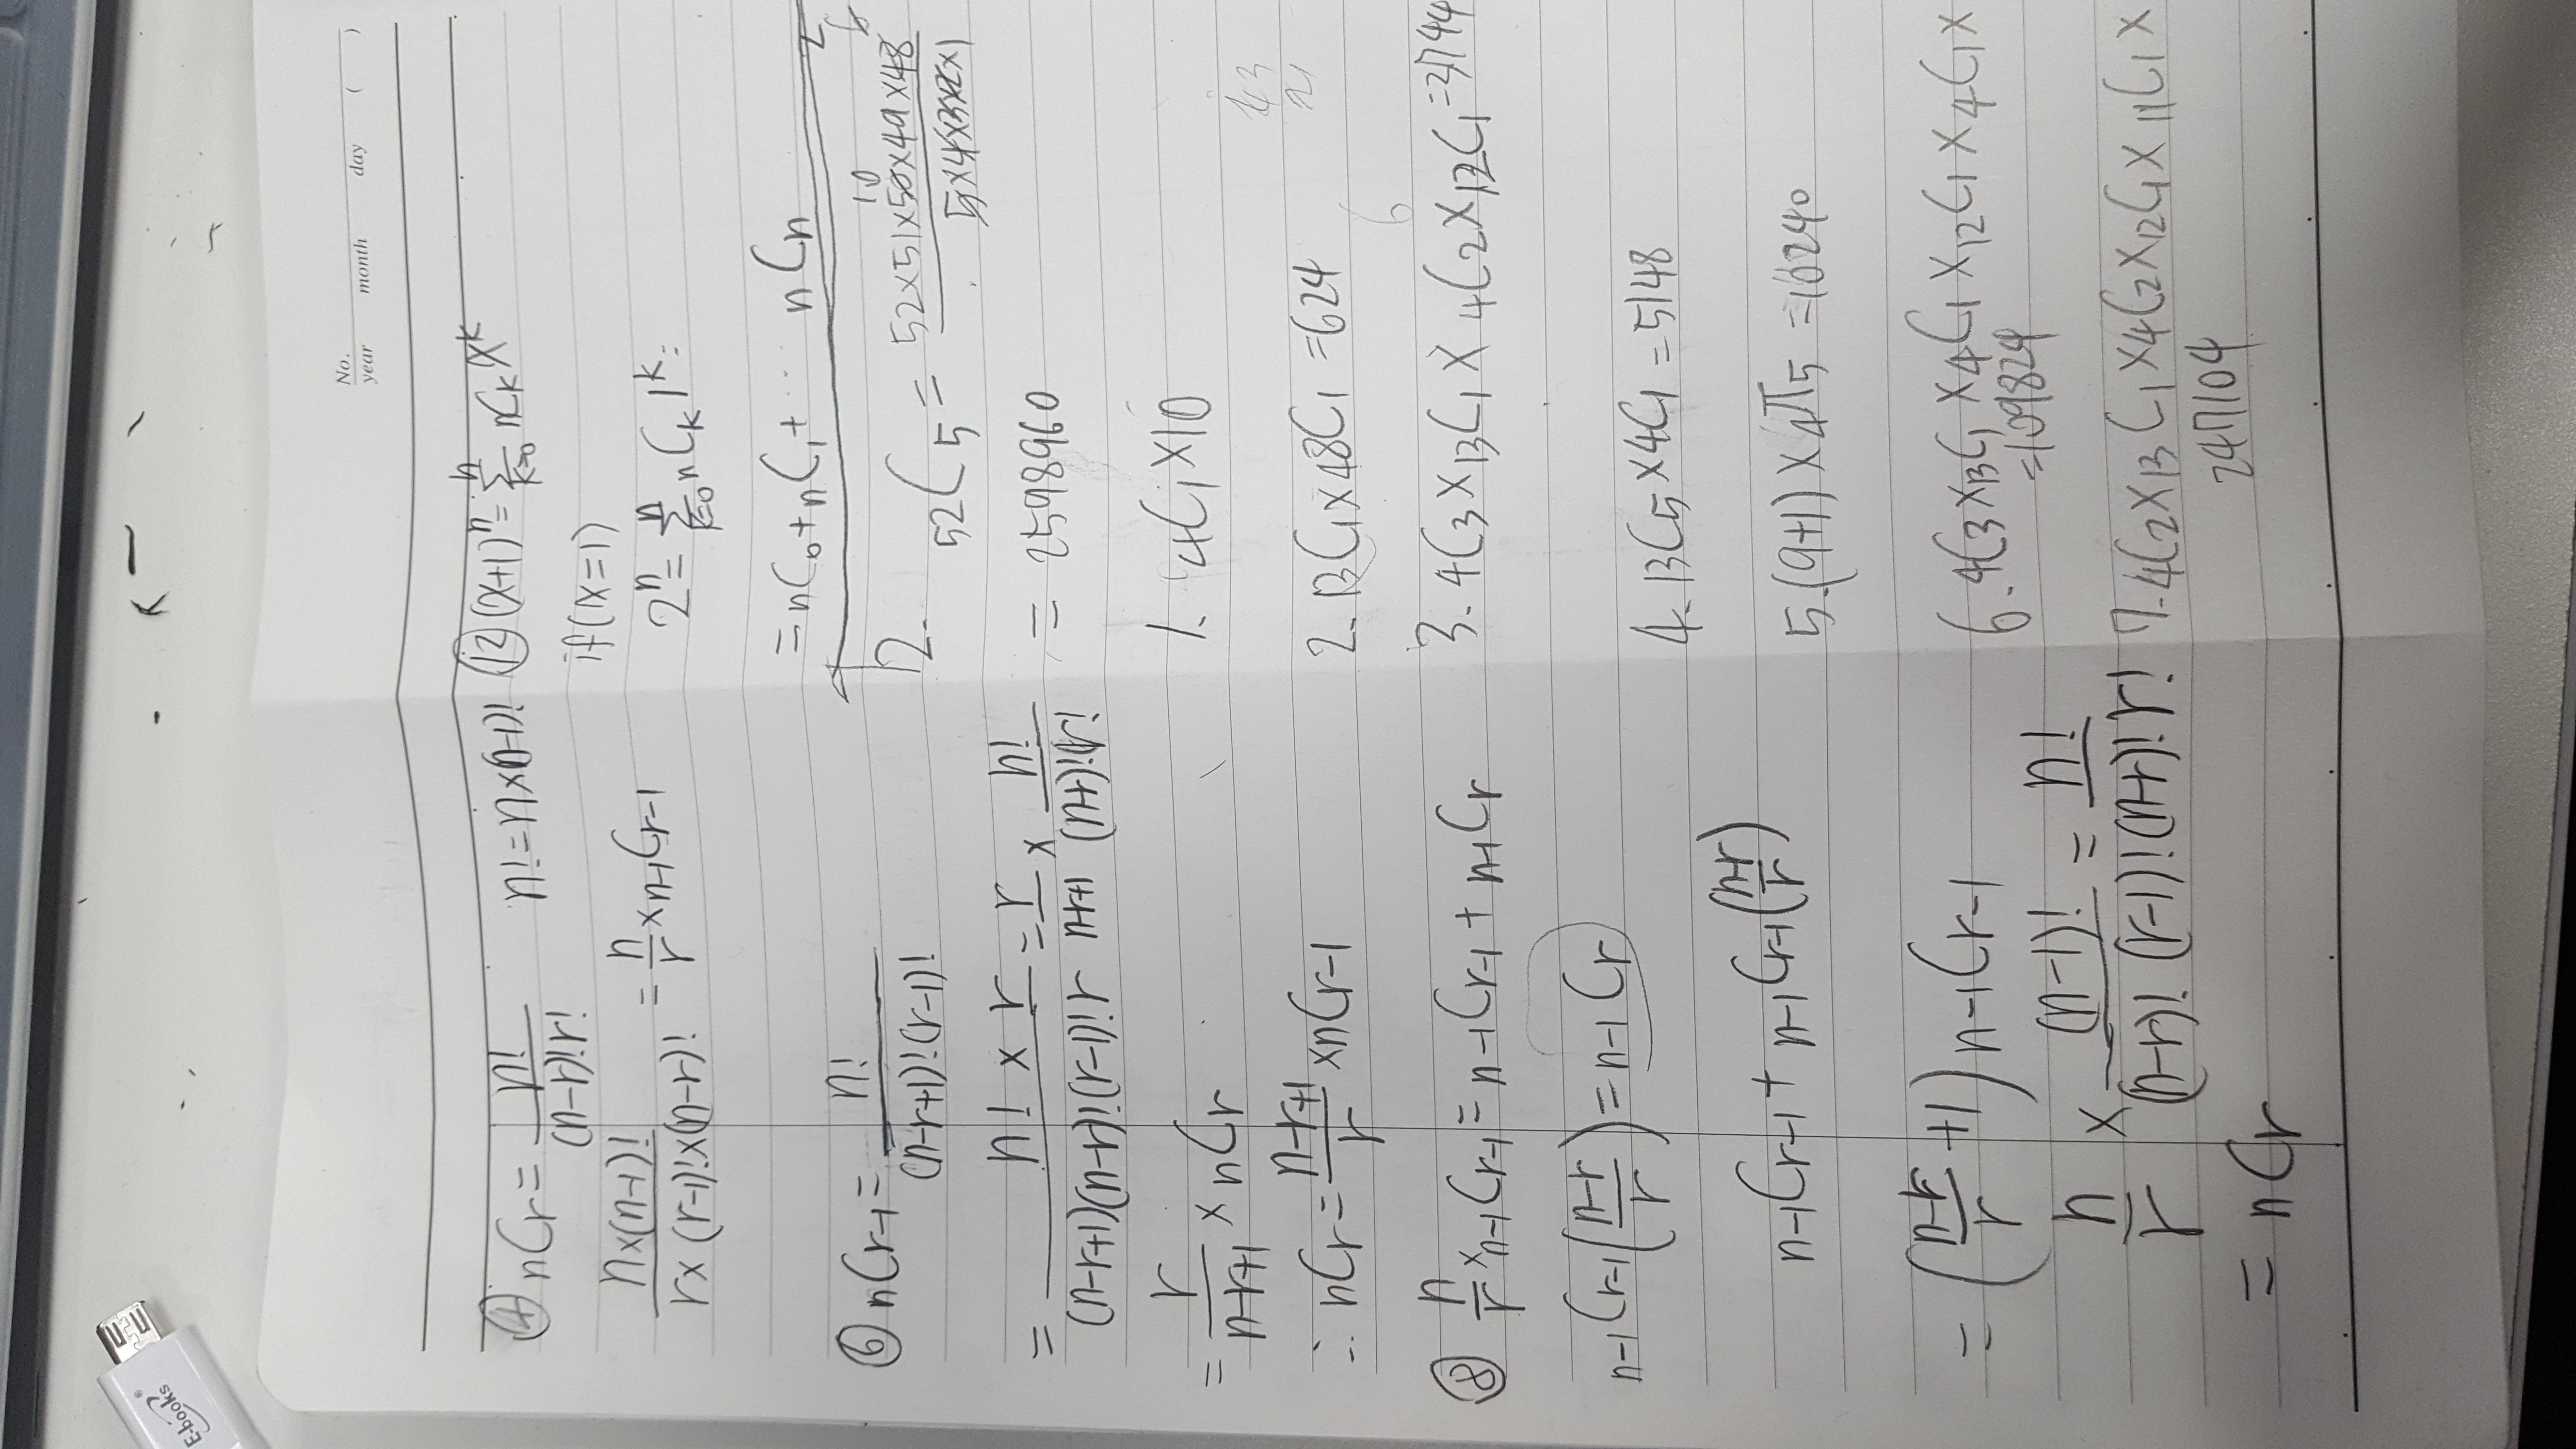 E-books
No.
year month day ( )
④ nCr = n! / (n-r)!r!   n! = n×(n-1)!
n×(n-1)! / r×(r-1)!×(n-r)! = n/r × n-1Cr-1
⑥ nCr-1 = n! / (n-r+1)!(r-1)!
= n! × r / (n-r+1)(n-r)!(r-1)!r = r / n-r+1 × n! / (n-r)!r!
= r / n-r+1 × nCr
∴ nCr = n-r+1 / r × nCr-1
⑧ n/r × n-1Cr-1 = n-1Cr-1 + n-1Cr
n-1Cr-1 (n-r / r) = n-1Cr
n-1Cr-1 + n-1Cr-1 (n-r / r)
= (n-r / r + 1) n-1Cr-1
n/r × (n-1)! / (n-r)!(r-1)! = n! / (n-r)!r!
= nCr
⑫ (x+1)^n = Σ k=0 n nCk x^k
if(x=1)
2^n = Σ k=0 n nCk 1^k =
= nC0 + nC1 + ⋯ nCn
2.
52C5 = 52×51×50×49×48 / 5×4×3×2×1
10
= 2598960
1. 4C1×10
2. 13C1×48C1 = 624
6
3. 4C3×13C1×4C2×12C1 = 3744
4. 13C5×4C1 = 5148
5. (9+1)×4π5 = 10240
6. 4C3×13C1×4C1×12C1×4C1×
=109824
7. 4C2×13C1×4C2×12C1×11C1×
247104